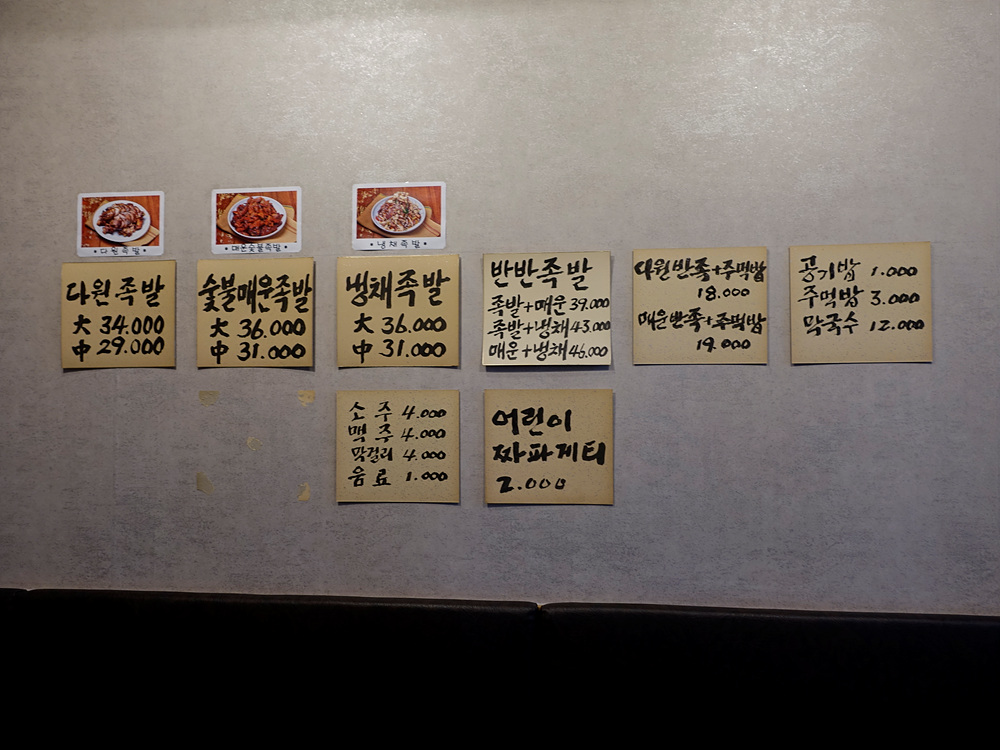 • 다원족발 •
• 매운숯불족발 •
• 냉채족발 •
다원족발
大 34.000
中 29.000
숯불매운족발
大 36.000
中 31.000
냉채족발
大 36.000
中 31.000
반반족발
족발+매운 39.000
족발+냉채 43.000
매운+냉채 46.000
다원반족+주먹밥
18.000
매운반족+주먹밥
19.000
공기밥 1.000
주먹밥 3.000
막국수 12.000
소주 4.000
맥주 4.000
막걸리 4.000
음료 1.000
어린이
짜파게티
2.000